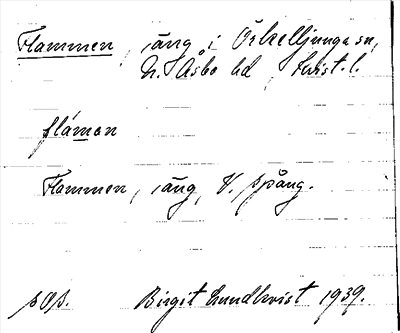 Flammen, iäng i Örkelljunga sn,
N. Åsbo hd, Krist. l.
flámen
Flammen, iäng, V. spång.
Birgit Lundkvist 1939.